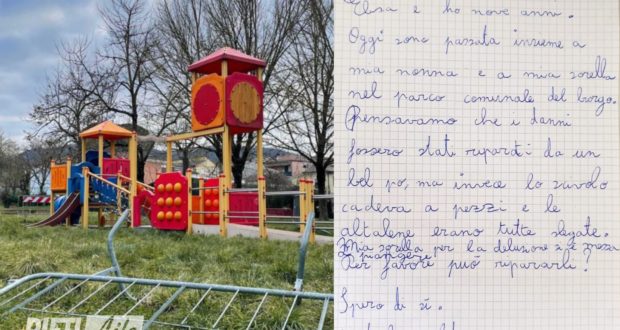 Elsa e ho nove anni.
Oggi sono passata insieme a
mia nonna e a mia sorella
nel parco comunale del borgo.
Pensavamo che i danni
fossero stati riparati da un
bel po, ma invece lo scivolo
cadeva a pezzi e le
altalene erano tutte slegate.
Mia sorella per la delusione si è messa
a piangere
Per favore può ripararli?
Spero di sì.
RIETI Life